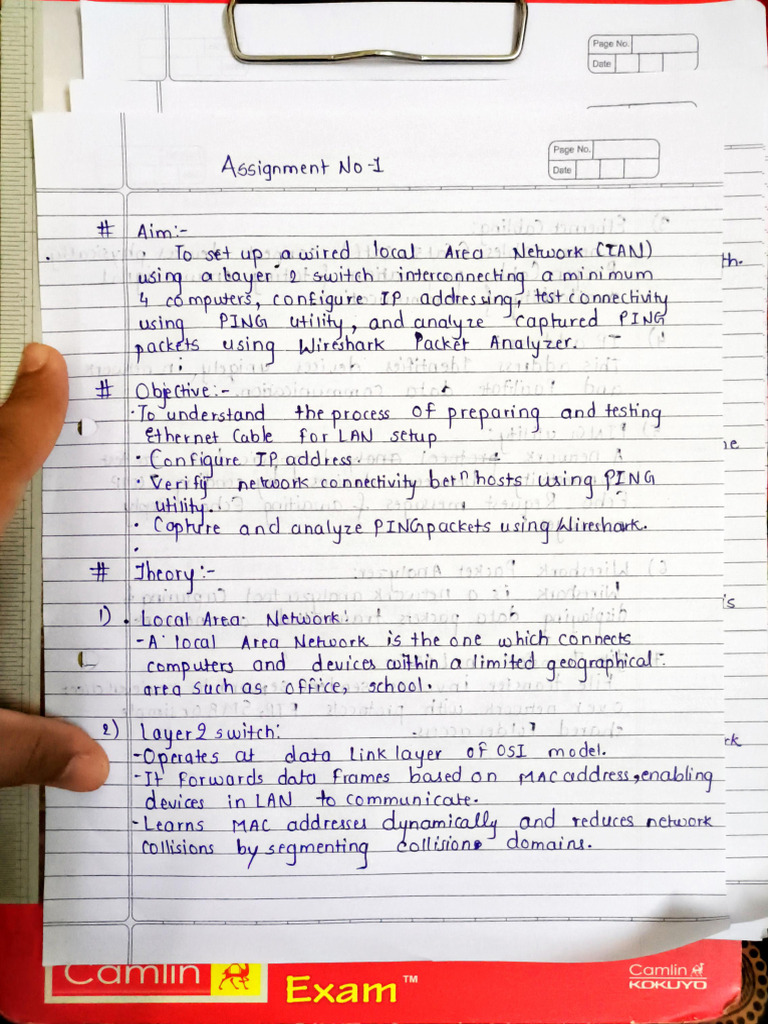 Page No.
Date
Page No.
Date
Assignment No-1
# Aim:-
To set up a wired local Area Network (LAN)
using a Layer 2 switch interconnecting a minimum
4 computers, configure IP addressing, test connectivity
using PING utility, and analyze captured PING
packets using Wireshark Packet Analyzer.
# Objective:-
·To understand the process of preparing and testing
Ethernet Cable for LAN setup
· Configure IP address.
· Verify network connectivity betⁿ hosts using PING
utility.
· Capture and analyze PING packets using Wireshark.
·
# Theory:-
1) Local Area Network:
-A local Area Network is the one which connects
computers and devices within a limited geographical
area such as office, school.
2) Layer 2 switch:
-Operates at data link layer of OSI model.
-It forwards data frames based on MAC address, enabling
devices in LAN to communicate.
-Learns MAC addresses dynamically and reduces network
collisions by segmenting collision domains.
Camlin
Exam™
Camlin
KOKUYO